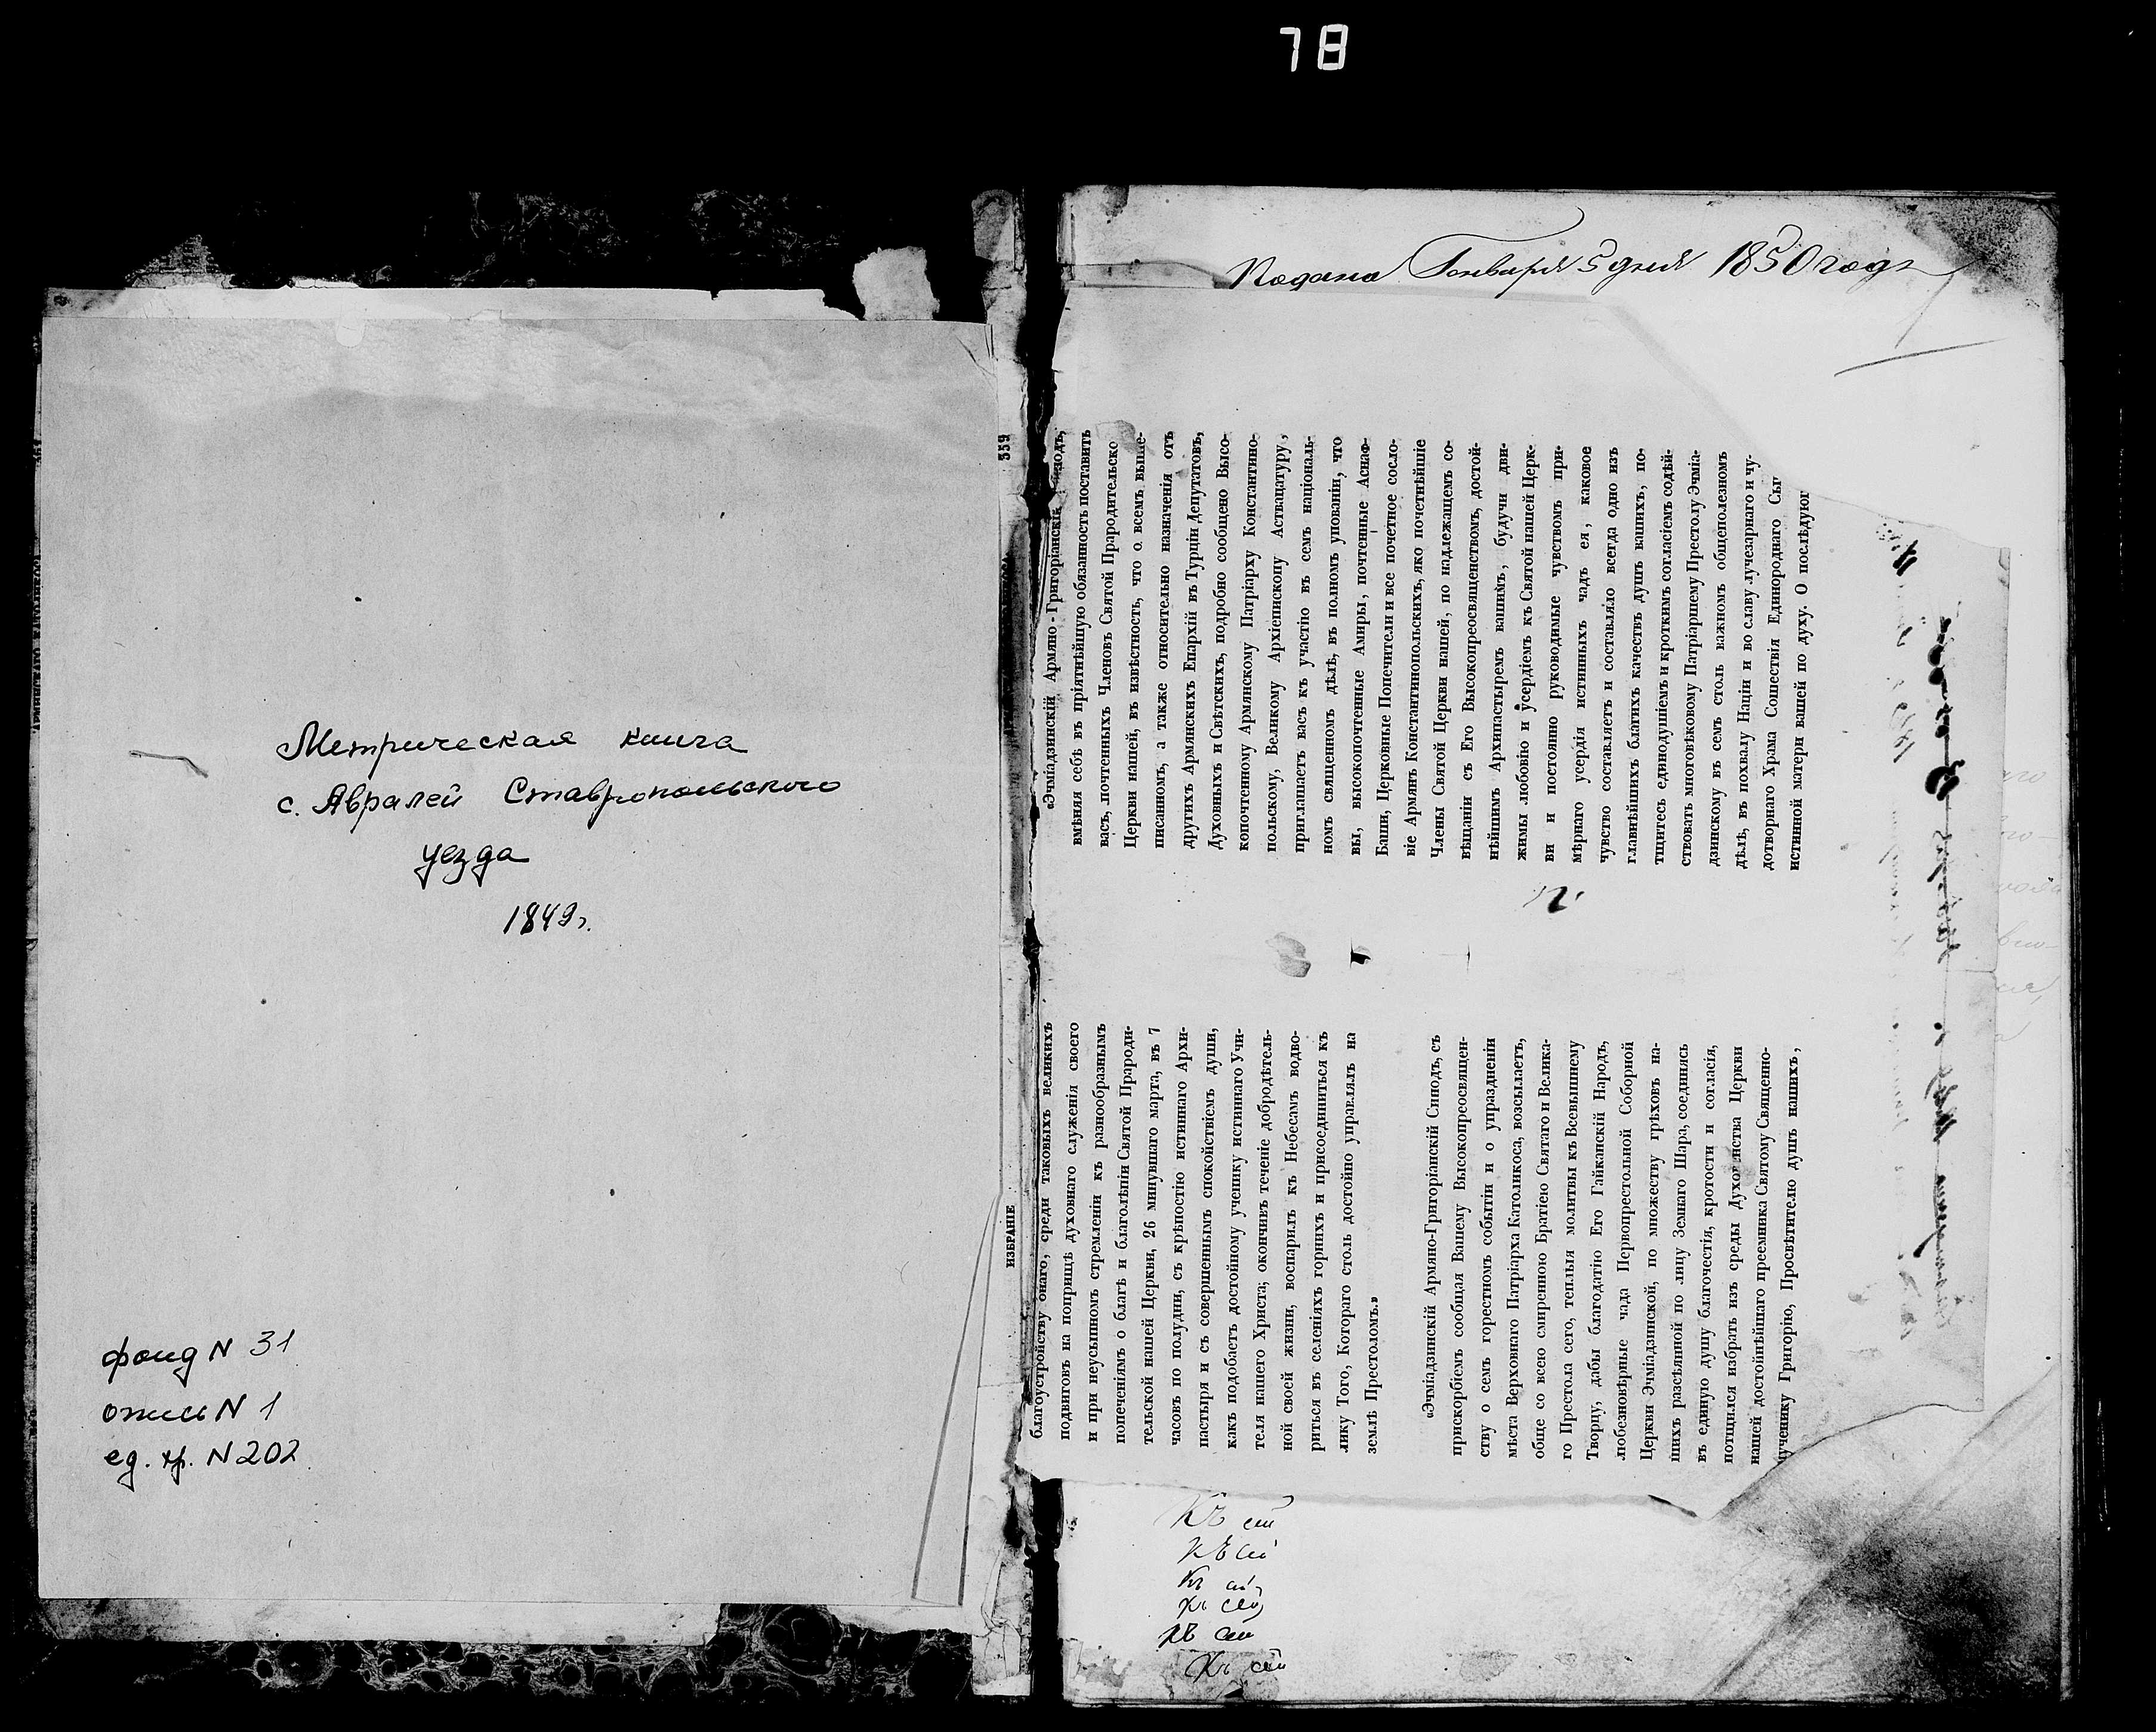 78
Метрическая книга
с. Авралей Ставропольского
уезда
1849г.
фонд N 31
опись N 1
ед. хр. N 202
559
ИЗБРАНІЕ
Подана Генваря 5 дня 1850 года
«Эчміадзинскій Армяно-Григоріанскій
вмѣняя себѣ въ пріятнѣйшую обязанность поставить
васъ, почтенныхъ Членовъ Святой Прародительско
Церкви нашей, въ извѣстность, что о всемъ выше-
писанномъ, а также относительно назначенія отъ
другихъ Армянскихъ Епархій въ Турціи Депутатовъ,
Духовныхъ и Свѣтскихъ, подробно сообщено Высо-
копочтенному Армянскому Патріарху Константино-
польскому, Великому Архіепископу Аствацатуру,
приглашаетъ васъ къ участію въ семъ національ-
номъ священномъ дѣлѣ, въ полномъ упованіи, что
вы, высокопочтенные Амиры, почтенные Аснаф-
Баши, Церковные Попечители и все почетное сосло-
віе Армянъ Константинопольскихъ, яко почетнѣйшіе
Члены Святой Церкви нашей, по надлежащемъ со-
вѣщаніи съ Его Высокопреосвященствомъ, достой-
нѣйшимъ Архипастыремъ вашимъ, будучи дви-
жимы любовію и усердіемъ къ Святой нашей Церк-
ви и постоянно руководимые чувствомъ при-
мѣрнаго усердія истинныхъ чадъ ея, каковое
чувство составляетъ и составляло всегда одно изъ
главнѣйшихъ благихъ качествъ душъ вашихъ, по-
тщитесь единодушіемъ и кроткимъ согласіемъ содѣй-
ствовать многовѣковому Патріаршему Престолу Эчміа-
дзинскому въ семъ столь важномъ общеполезномъ
дѣлѣ, въ похвалу Націи и во славу лучезарнаго и чу-
дотворнаго Храма Сошествія Единороднаго Сы
истинной матери вашей по духу. О послѣдую
благоустройству онаго, среди таковыхъ великихъ
подвиговъ на поприщѣ духовнаго служенія своего
и при неусыпномъ стремленіи къ разнообразнымъ
попеченіямъ о благѣ и благолѣпіи Святой Прароди-
тельской нашей Церкви, 26 минувшаго марта, въ 7
часовъ по полудни, съ крѣпостію истиннаго Архи-
пастыря и съ совершеннымъ спокойствіемъ души,
какъ подобаетъ достойному ученику истиннаго Учи-
теля нашего Христа; окончивъ теченіе добродѣтель-
ной своей жизни, воспарилъ къ Небесамъ водво-
риться въ селеніяхъ горнихъ и присоединиться къ
лику Того, Котораго столь достойно управлялъ на
землѣ Престоломъ.»
«Эчміадзинскій Армяно-Григоріанскій Синодъ, съ
прискорбіемъ сообщая Вашему Высокопреосвящен-
ству о семъ горестномъ событіи и о упраздненіи
мѣста Верховнаго Патріарха Католикоса, возсылаетъ,
обще со всею смиренною Братіею Святаго и Велика-
го Престола сего, теплыя молитвы къ Всевышнему
Творцу, дабы благодатію Его Гайканскій Народъ,
любезновѣрные чада Первопрестольной Соборной
Церкви Эчміадзинской, по множеству грѣховъ на-
шихъ разсѣянной по лицу Земнаго Шара, соединясь
въ единую душу благочестія, кротости и согласія,
потщился избрать изъ среды Духовенства Церкви
нашей достойнѣйшаго преемника Святому Священно-
мученику Григорію, Просвѣтителю душъ нашихъ,